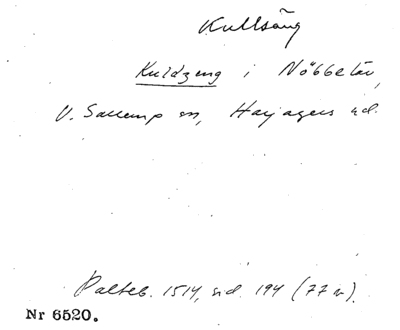 Kullsäng
Kuldzeng i Nöbbelöv,
V. Sallerup sn, Harjagers hd.
Palteb. 1514, sid. 194 (77 v).
Nr 6520.